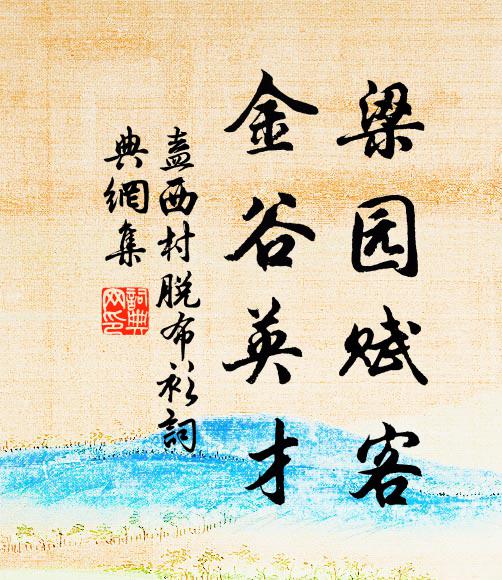 梁园赋客
金谷英才
盍西村脱布衫詞
典網集
詞典
网印